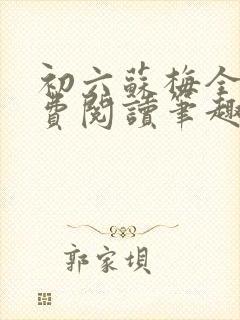 初六蘇梅全
費閱讀筆趣
郭家埧